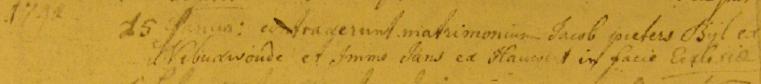 25 Januar: contraxerunt matrimonium Jacob pieters Bijl ex
Nibuxwoude et Imme Jans ex Hauwert in facie Ecclesiæ